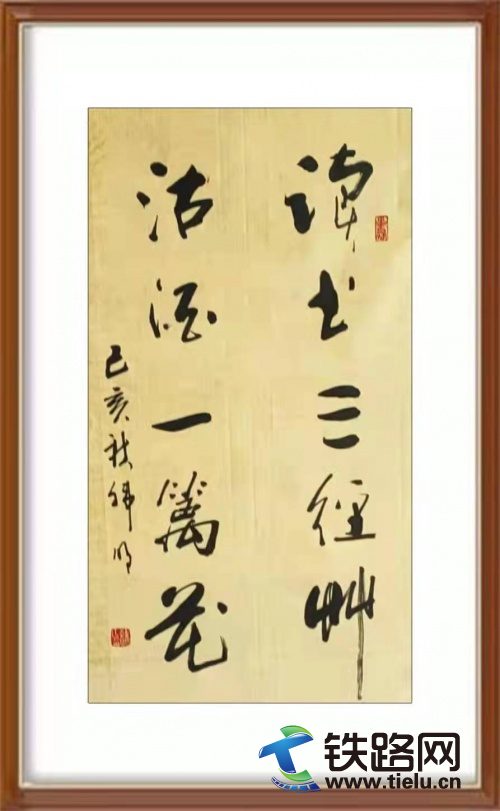 读书三徑艸
沽酒一篱花
己亥秋
铁路网
www.tielu.cn